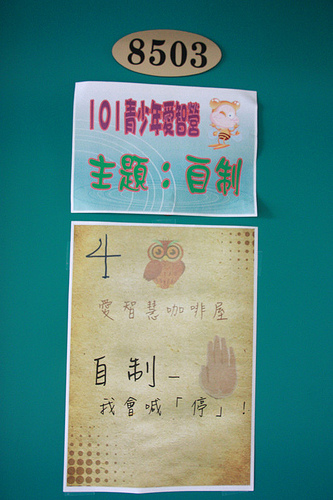 8503
101青少年愛智營
主題：自制
4
愛智慧咖啡屋
自制－
我會喊「停」！